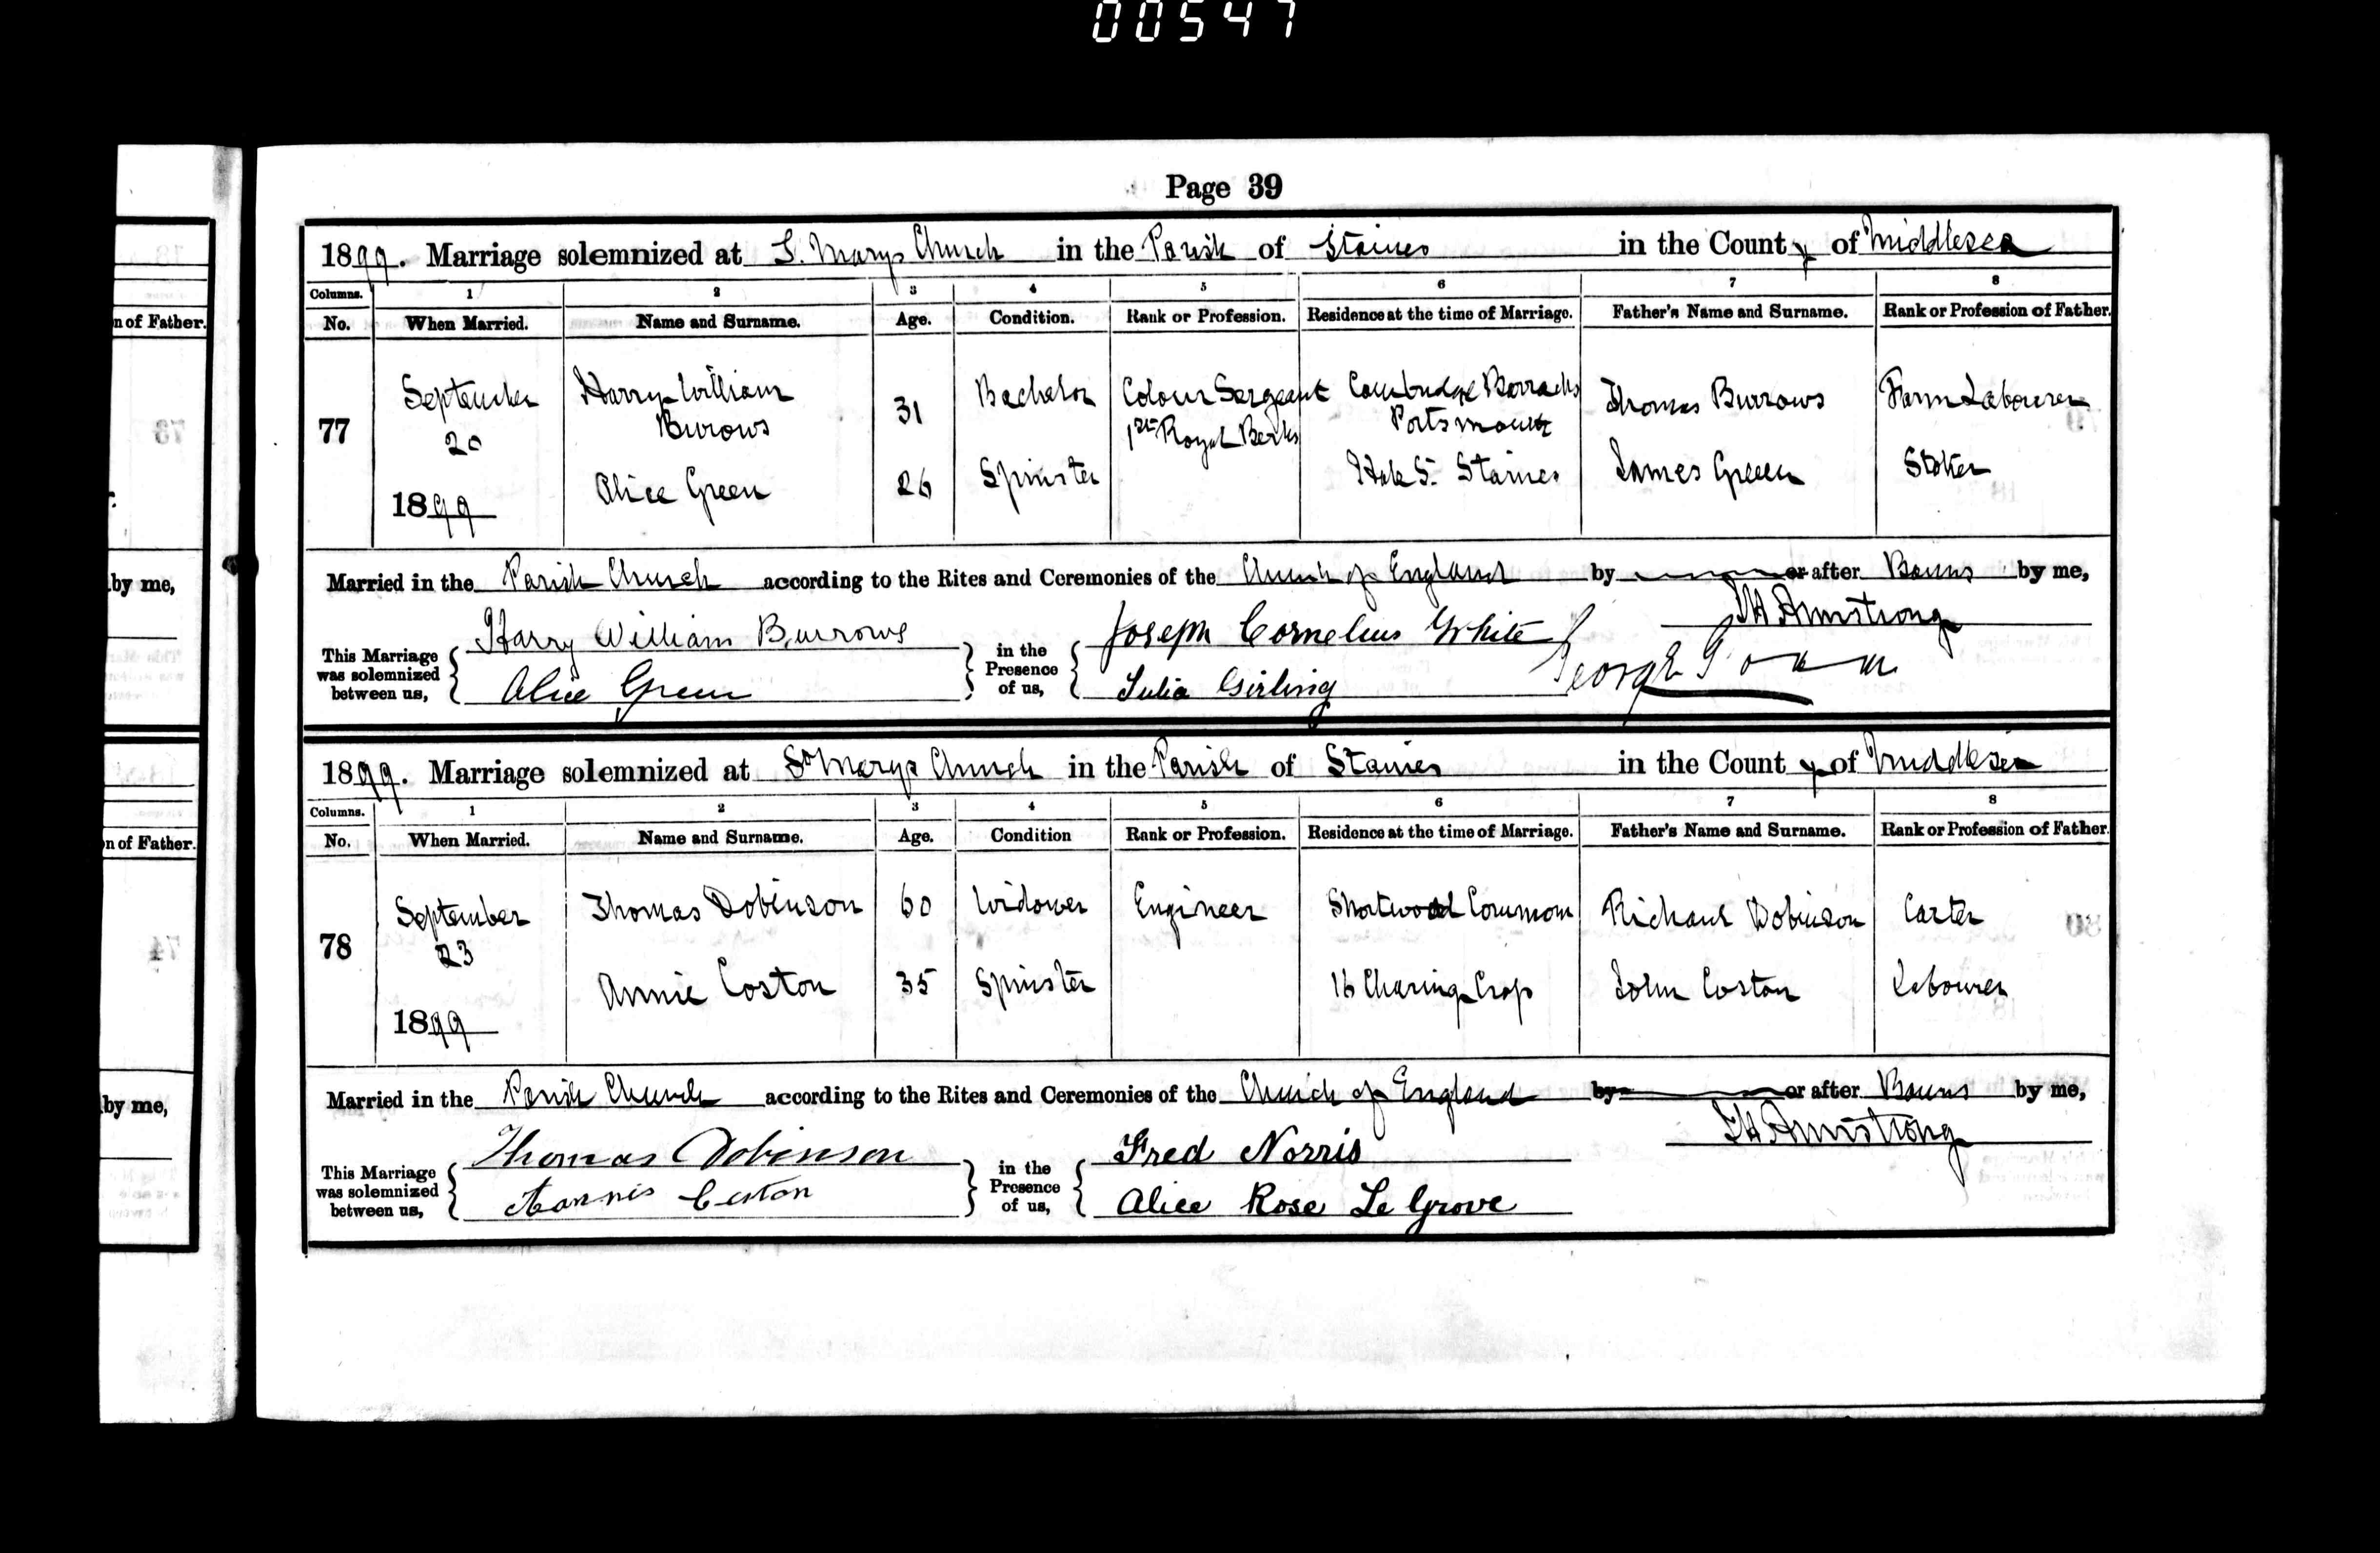 00547
Page 39
1899. Marriage solemnized at S. Marys Church in the Parish of Staines in the County of Middlesex
Columns. 1 2 3 4 5 6 7 8
n of Father. No. When Married. Name and Surname. Age. Condition. Rank or Profession. Residence at the time of Marriage. Father's Name and Surname. Rank or Profession of Father.
77 September 20 1899 Harry William Burows 31 Bachelor Colour Sergeant 1st Royal Berks Cambridge Barracks Portsmouth Thomas Burrows Farm Labourer
Alice Green 26 Spinster Hale St. Staines James Green Stoker
by me, Married in the Parish Church according to the Rites and Ceremonies of the Church of England by or after Banns by me,
Harry William Burrows Joseph Cornelius White Armstrong
This Marriage was solemnized between us, in the Presence of us,
Alice Green Julia Girling George
1899. Marriage solemnized at St Marys Church in the Parish of Staines in the County of Middlesex
Columns. 1 2 3 4 5 6 7 8
n of Father. No. When Married. Name and Surname. Age. Condition Rank or Profession. Residence at the time of Marriage. Father's Name and Surname. Rank or Profession of Father.
78 September 23 1899 Thomas Dobinson 60 Widower Engineer Shortwood Common Richard Dobinson Carter
Annie Coston 35 Spinster 16 Charing Cross John Coston Labourer
by me, Married in the Parish Church according to the Rites and Ceremonies of the Church of England by or after Banns by me,
Thomas Dobinson Fred Norris Armstrong
This Marriage was solemnized between us, in the Presence of us,
Alice Rose Le Grove